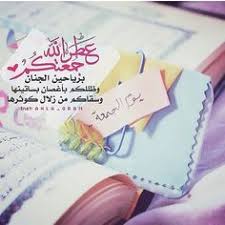 عطر الله
جمعتكم
برياحين الجنان
وظللكم بأغصان بساتينها
وسقاكم من زلال كوثرها
يوم الجمعة